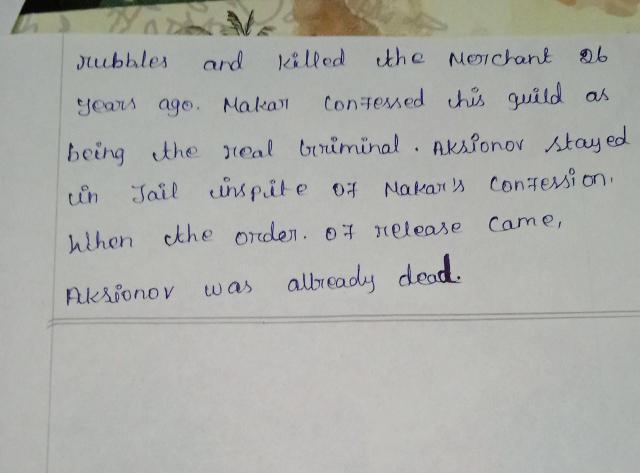 rubbles and killed the Merchant 26
years ago. Makar Confessed his guild as
being the real Criminal. Aksionov stayed
in Jail inspite of Makar's Confession.
When the order. of release came,
Aksionov was allready dead.